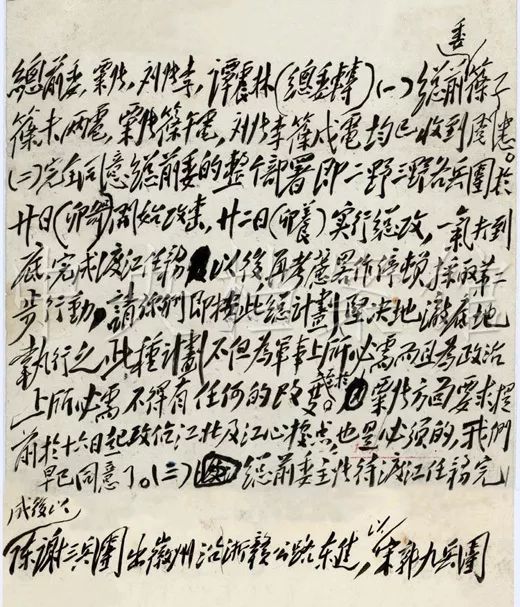 委
總前委,粟张,刘张李,谭震林(總委轉)(一)總前篠子
篠未两電,粟张篠午電,刘张李篠戌電均已收到閱悉。
(二)完全同意總前委的整个部署即二野三野各兵團於
廿日(卯哿)開始攻击,廿二日(卯養)实行總攻,一氣打到
底完成渡江任務以後,再考慮略作停頓,採取第二
步行動,請你們即按此總計劃堅决地澈底地
執行之。此種計劃不但為軍事上所必需而且為政治
上所必需,不得有任何的改变。至於粟张方面要求提
前於十六日起攻佔江北及江心據点也是必須的,我們
早已同意了。(三)總前委主张待渡江任務完
成後以
陈谢三兵團出徽州沿浙赣公路东進,以宋郭九兵團